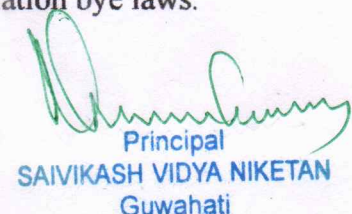 ation bye laws.
Principal
SAIVIKASH VIDYA NIKETAN
Guwahati